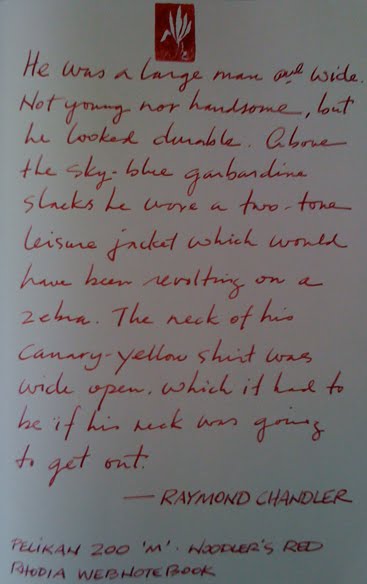 He was a large man and wide.
Not young nor handsome, but
he looked durable. Above
the sky-blue garbardine
slacks he wore a two-tone
leisure jacket which would
have been revolting on a
zebra. The neck of his
canary-yellow shirt was
wide open, which it had to
be if his neck was going
to get out.
— RAYMOND CHANDLER
PELIKAN 200 'M' · NOODLER'S RED
RHODIA WEBNOTEBOOK